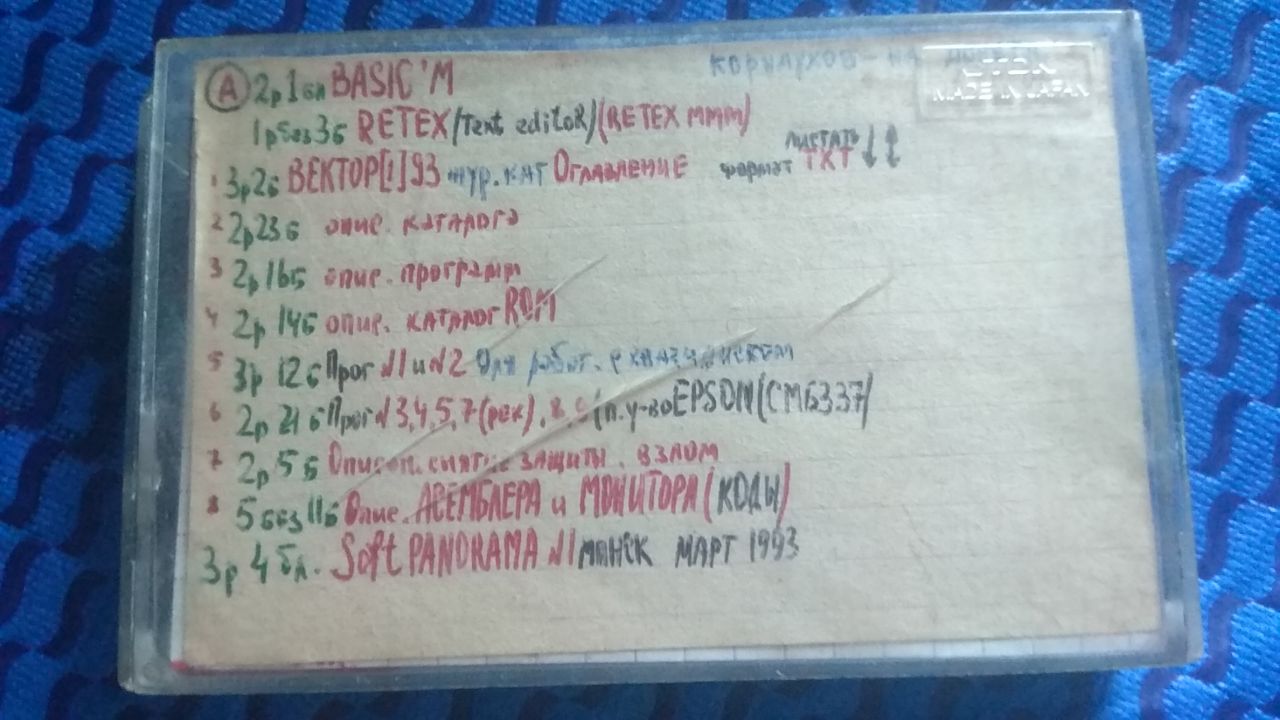 КОРНАУХОВ - НА
TDK
MADE IN JAPAN
А 2р 1бл BASIC'M
1р без 3б RETEX/Text editoR)(RETEX МММ)
ЛИСТАТЬ ↓↕
1 3р 2б ВЕКТОР[1]93 жур. КАТ ОГЛАВЛЕНИЕ формат ТКТ
2 2р 23б опис. каталога
3 2р 16б опис. программ
4 2р 14б опис. каталог ROM
5 3р 12б Прог N1 и N2 Для работ. с квазидиском
6 2р 21б Прог N 3,4,5,7(рек),8,9(п.у-во EPSON(СМ6337)
7 2р 5б снятие защиты. взлом
8 5 без 11б Опис. АСЕМБЛЕРА и МОНИТОРА (КОДЫ)
3р 4бл. Soft PANORAMA N1 МИНСК МАРТ 1993